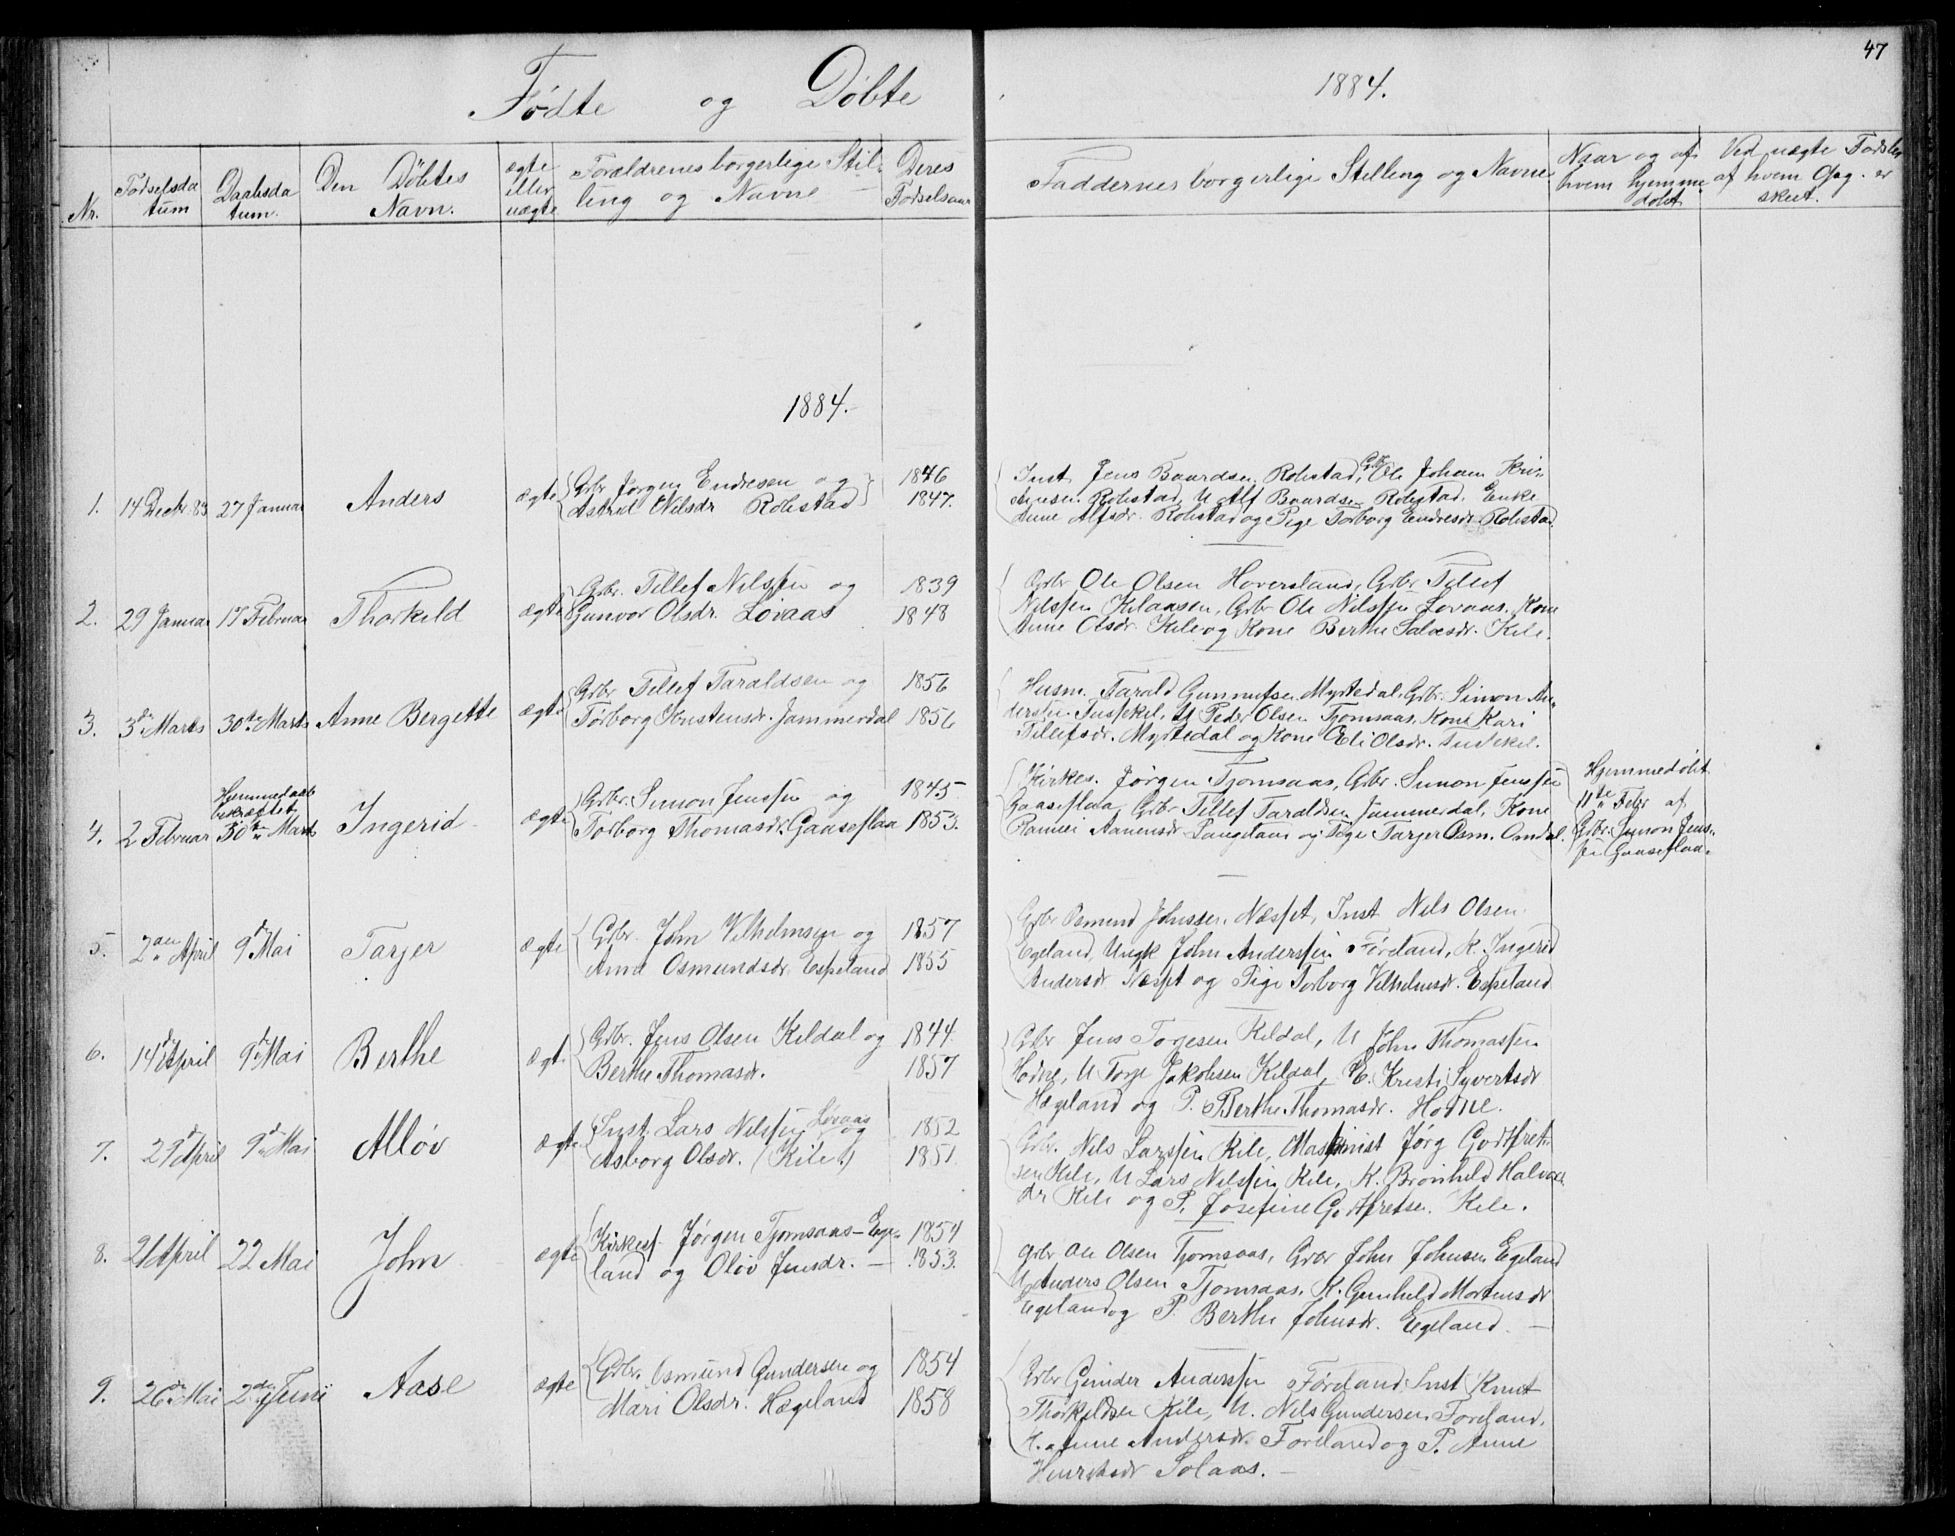 47
Fødte og Døbte
1884.
Nr.
Fødselsda
tum
Daabsda
tum.
Den Døbtes
Navn.
ægte
eller
uægte
Forældrenes borgerlige Stil-
ling og Navne
Deres
Fødselsaar
Faddernes borgerlige Stilling og Navne
Naar og af
hvem hjemme
døbt
Ved uægte Fødsler
af hvem Opg. er
skeet.
1884.
1. 14 Decbr. 83 27 Januar Anders ægte
Gbr Jørgen Endresen og 1846
Astrid Nilsdr Robstad 1847.
Inst. Jens Baardsen Robstad, Gbr Ole Johan Kri-
stensen Robstad, U Alf Baardsen Robstad, Enke
Anne Alfsdr. Robstad og Pige Torborg Endresdr. Robstad
2. 29 Januar 17 Februar Thorkild ægte
Gbr. Tellef Nilssen og 1839
Gunvor Olsdr. Løvaas 1848
Gbr Ole Olsen Hoversland, Gbr Tellef
Nilssen Kilaasen, Gbr Ole Nilssen Løvaas, Kone
Anne Olsdr. Kile og Kone Berthe Salvesdr. Kile.
3. 3die Marts 30te Marts Anne Bergette ægte
Gbr Tellef Taraldsen og 1856
Torborg Kristensdr. Jammerdal 1856
Husm. Tarald Gunnufsen Myrtedal, Gbr. Simon An-
derssen Tusekil, U Peder Olsen Tjomsaas, Kone Kari
Tellefsdr. Myrtedal og Kone Eli Olsdr. Tusekil.
4. 2 Februar
Hjemmedaab
bekræftet
30te Marts Ingerid ægte
Gbr. Simon Jenssen og 1845
Torborg Thomasdr. Gaaseflaa 1853.
Kirkes. Jørgen Tjomsaas, Gbr. Simon Jenssen
Gaaseflaa, Gbr Tellef Taraldsen Jammerdal, Kone
Aanensdr og Pige Tarjer Osm. Omdal.
Hjemmedøbt
11te Febr af
Gbr. Simon Jens-
sen Gaaseflaa.
5. 2den April 9d Mai Tarjer ægte
Gbr. John Vilhelmsen og 1857
Anne Osmundsdr. Espeland 1855
Gbr Osmund Johnssen Næsset, Inst Nils Olsen
Egeland, Ungk John Anderssen Føreland, K. Ingerid
Andersdr Næsset og Pige Torborg Vilhelmsdr. Espeland
6. 14d April 9d Mai Berthe ægte
Gbr. Jens Olsen Kildal og 1844.
Berthe Thomasdr. 1857
Gbr Jens Torjesen Kildal, U John Thomassen
Hodne, U Torje Jakobsen Kildal, E. Kristi Syvertsdr
Hægeland og P. Berthe Thomasdr. Hodne.
7. 29d April 9d Mai Alløv ægte
Inst. Lars Nilssen Løvaas og 1852
Asborg Olsdr. (Kile) 1851.
Gbr. Nils Larssen Kile, Maskinist Jørg Godtfret-
sen Kile, U Lars Nilssen Kile, K. Brønhild Halvors-
dr Kile og P. Josefine Godtfretsen Kile.
8. 21 April 22 Mai John ægte
Kirkes. Jørgen Tjomsaas–Ege- 1854
land og Oløv Jensdr. — 1853.
Gbr Ole Olsen Tjomsaas, Gbr John Johnsen Egeland
U Anders Olsen Tjomsaas, K. Gunhild Mortensdr
Egeland og P. Berthe Johnsdr. Egeland. —
9. 26de Mai 2den Juni Aase ægte
Gbr. Osmund Gundersen og 1854
Mari Olsdr. Hægeland 1858
Gbr Gunder Anderssen Føreland, Inst Knut
Thorkildsen Kile, U. Nils Gundersen Føreland,
K. Anne Andersdr. Føreland og P. Anne
Solaas. —